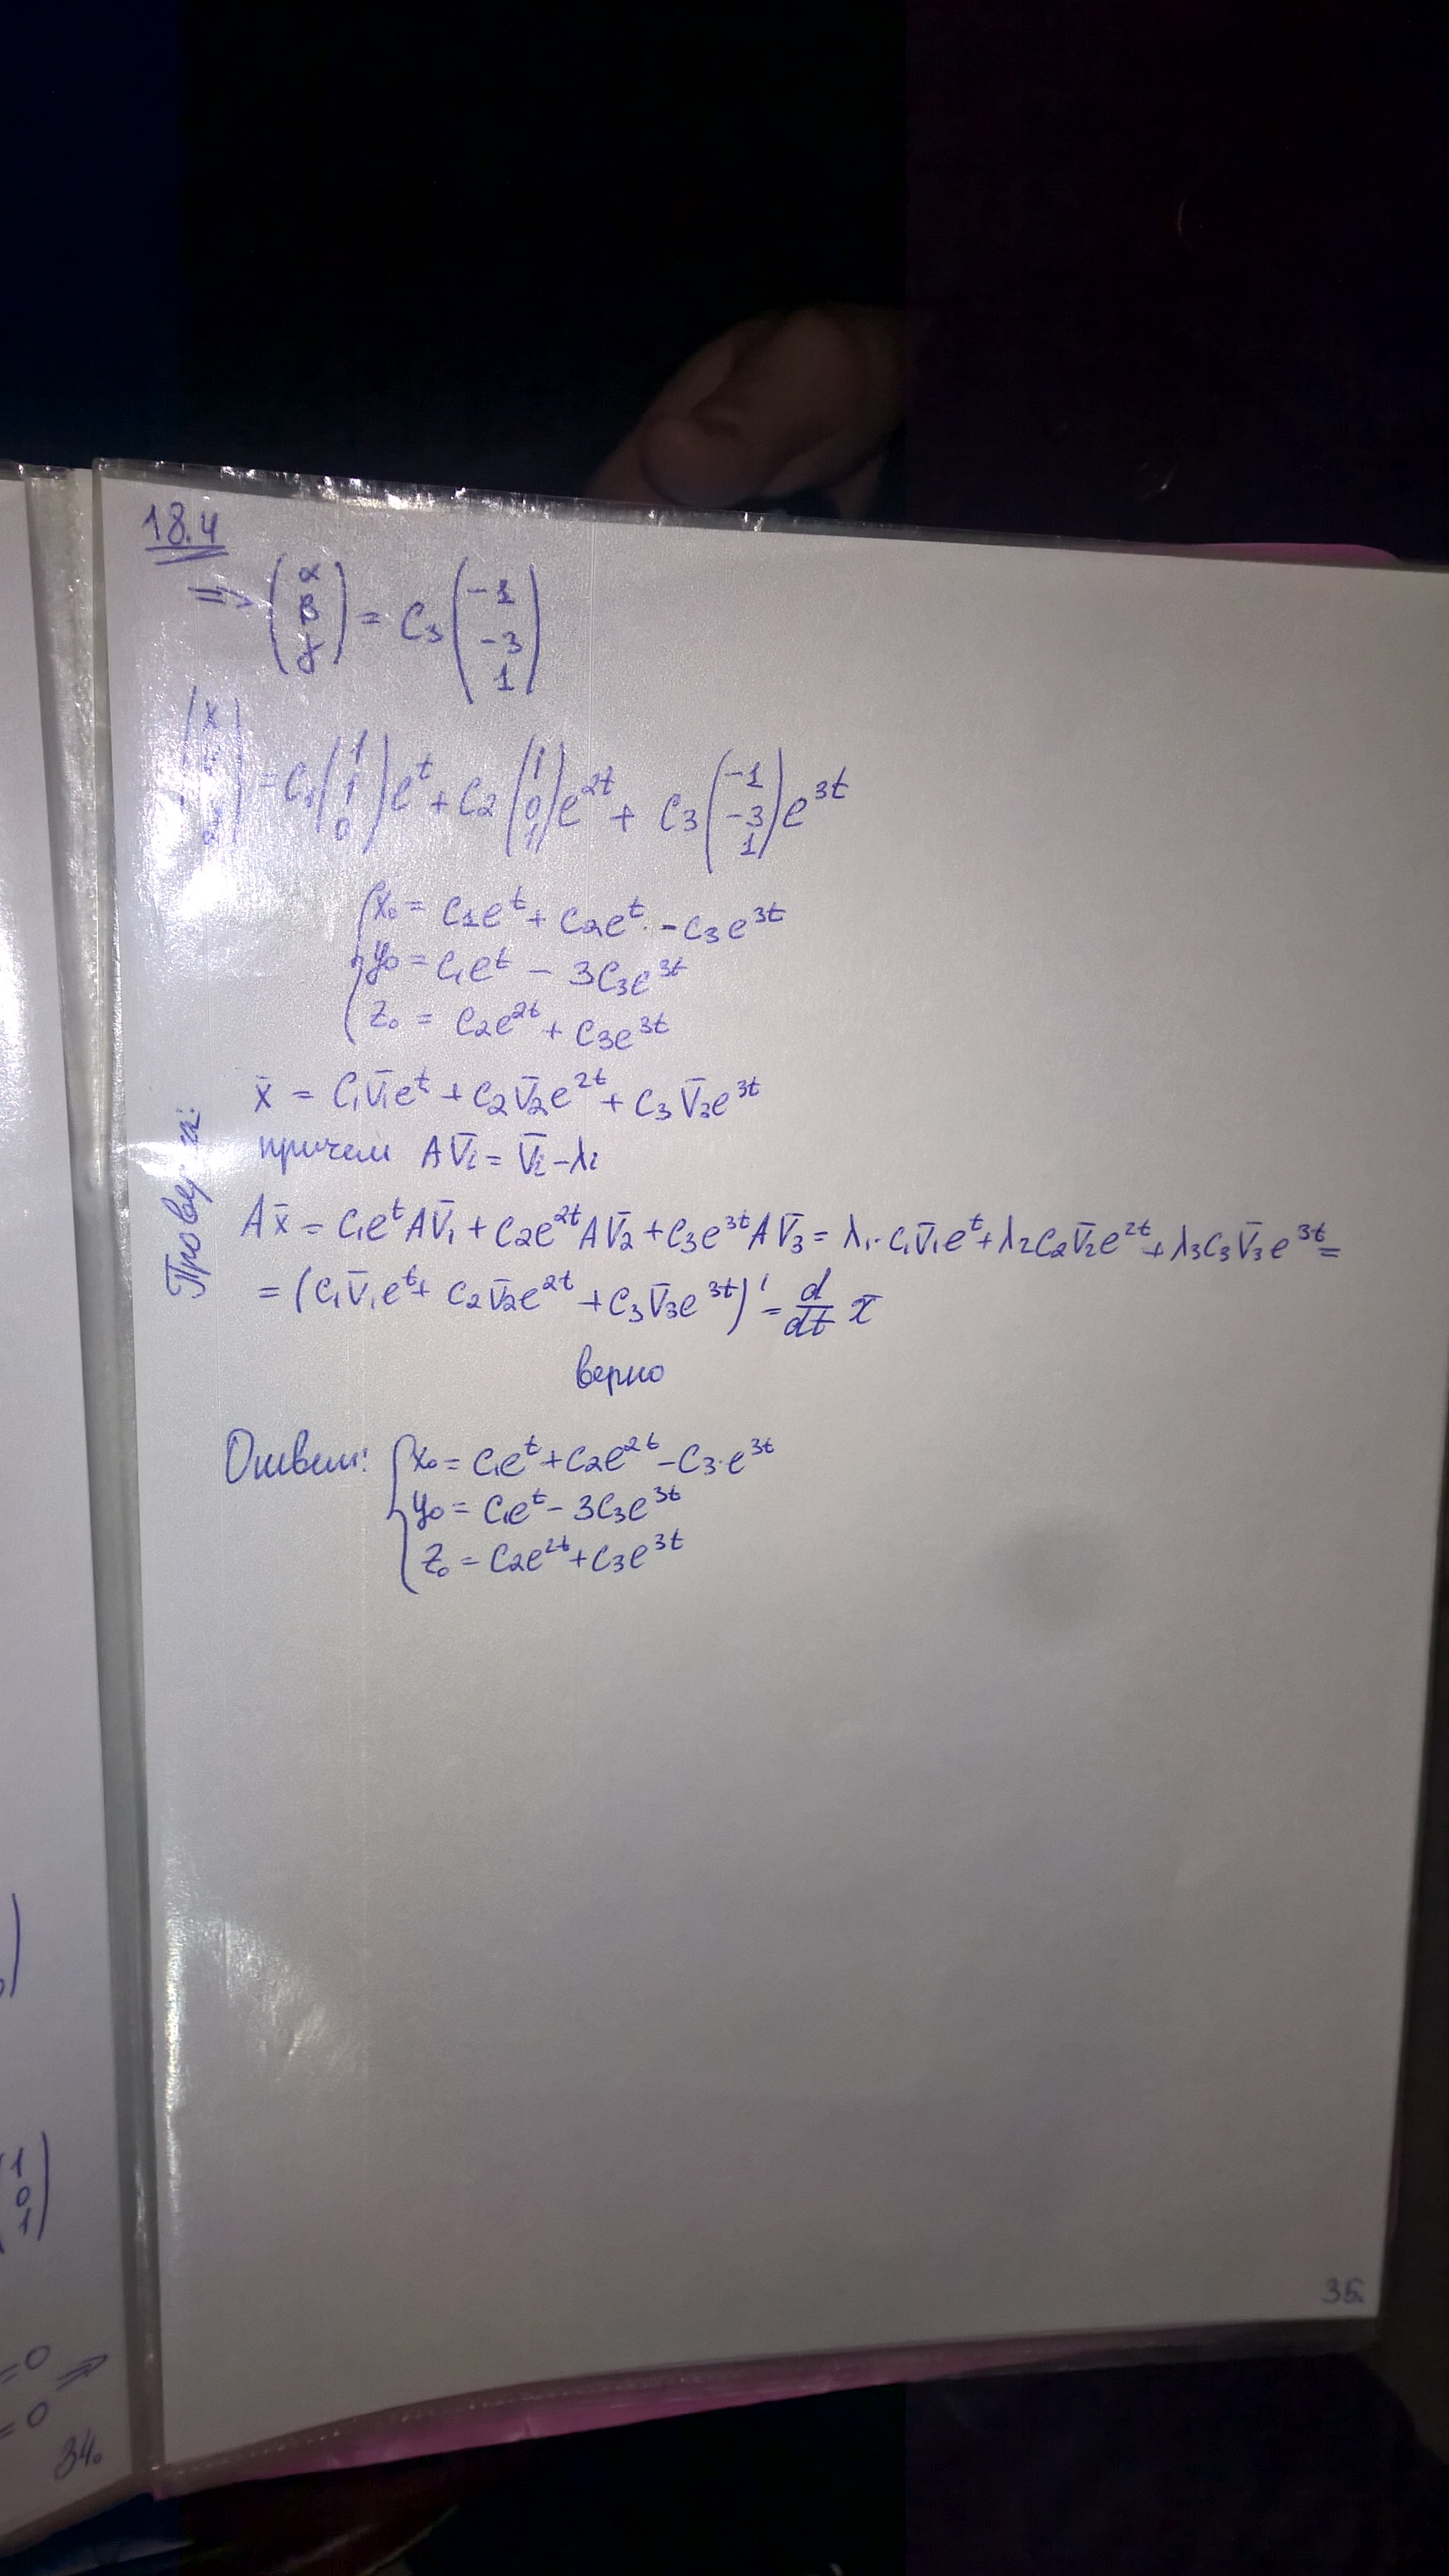 18.4
=> (α β γ) = C₃ (-1 -3 1)
(x z) = C₁ (1 1 0) e^t + C₂ (1 0 1) e^2t + C₃ (-1 -3 1) e^3t
{ x₀ = C₁e^t + C₂e^t - C₃e^3t
y₀ = C₁e^t - 3C₃e^3t
z₀ = C₂e^2t + C₃e^3t
x̄ = C₁V̄₁e^t + C₂V̄₂e^2t + C₃V̄₃e^3t
причем AV̄i = V̄i - λi
Ax̄ = C₁e^t AV̄₁ + C₂e^2t AV̄₂ + C₃e^3t AV̄₃ = λ₁·C₁V̄₁e^t + λ₂C₂V̄₂e^2t + λ₃C₃V̄₃e^3t =
= (C₁V̄₁e^t + C₂V̄₂e^2t + C₃V̄₃e^3t)' = d/dt x̄
верно
Ответ: { x₀ = C₁e^t + C₂e^2t - C₃·e^3t
y₀ = C₁e^t - 3C₃e^3t
z₀ = C₂e^2t + C₃e^3t
35.
(1 0 1)
=0 =>
=0
34.